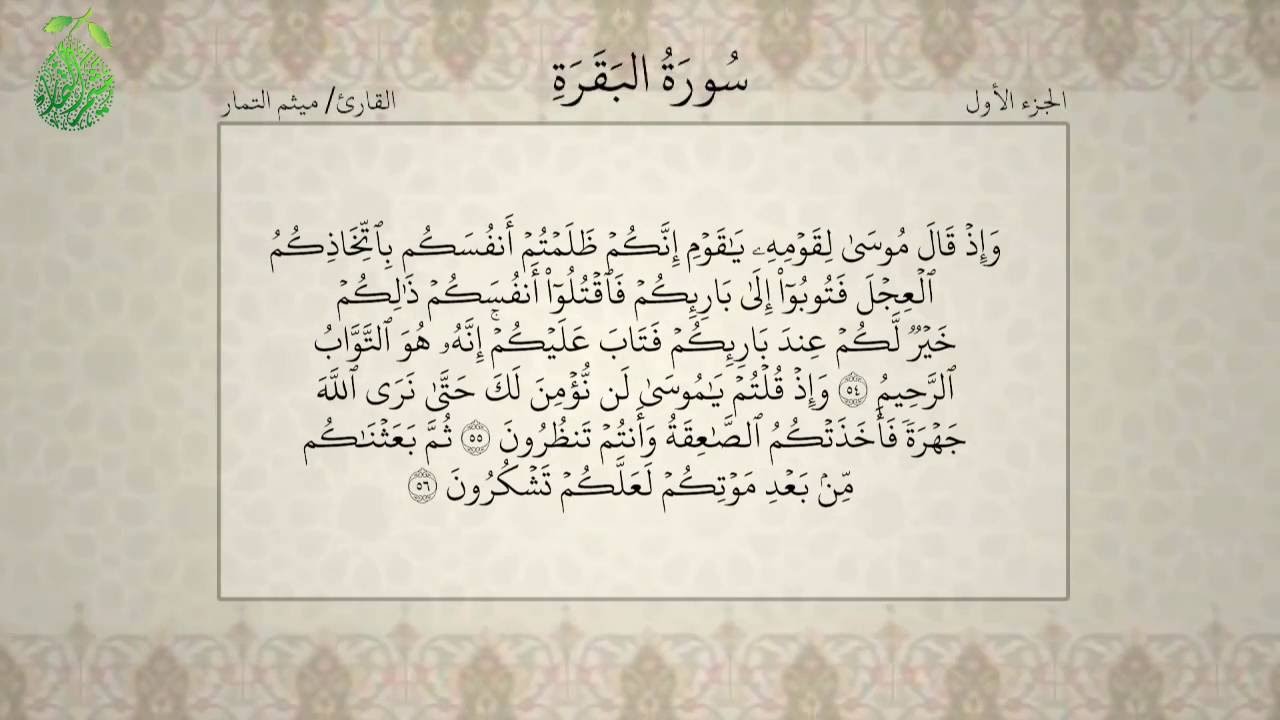 سُورَةُ البَقَرَةِ
الجزء الأول
القارئ/ ميثم التمار
وَإِذۡ قَالَ مُوسَىٰ لِقَوۡمِهِۦ يَٰقَوۡمِ إِنَّكُمۡ ظَلَمۡتُمۡ أَنفُسَكُم بِٱتِّخَاذِكُمُ
ٱلۡعِجۡلَ فَتُوبُوٓاْ إِلَىٰ بَارِئِكُمۡ فَٱقۡتُلُوٓاْ أَنفُسَكُمۡ ذَٰلِكُمۡ
خَيۡرٞ لَّكُمۡ عِندَ بَارِئِكُمۡ فَتَابَ عَلَيۡكُمۡۚ إِنَّهُۥ هُوَ ٱلتَّوَّابُ
ٱلرَّحِيمُ ٥٤ وَإِذۡ قُلۡتُمۡ يَٰمُوسَىٰ لَن نُّؤۡمِنَ لَكَ حَتَّىٰ نَرَى ٱللَّهَ
جَهۡرَةٗ فَأَخَذَتۡكُمُ ٱلصَّٰعِقَةُ وَأَنتُمۡ تَنظُرُونَ ٥٥ ثُمَّ بَعَثۡنَٰكُم
مِّنۢ بَعۡدِ مَوۡتِكُمۡ لَعَلَّكُمۡ تَشۡكُرُونَ ٥٦